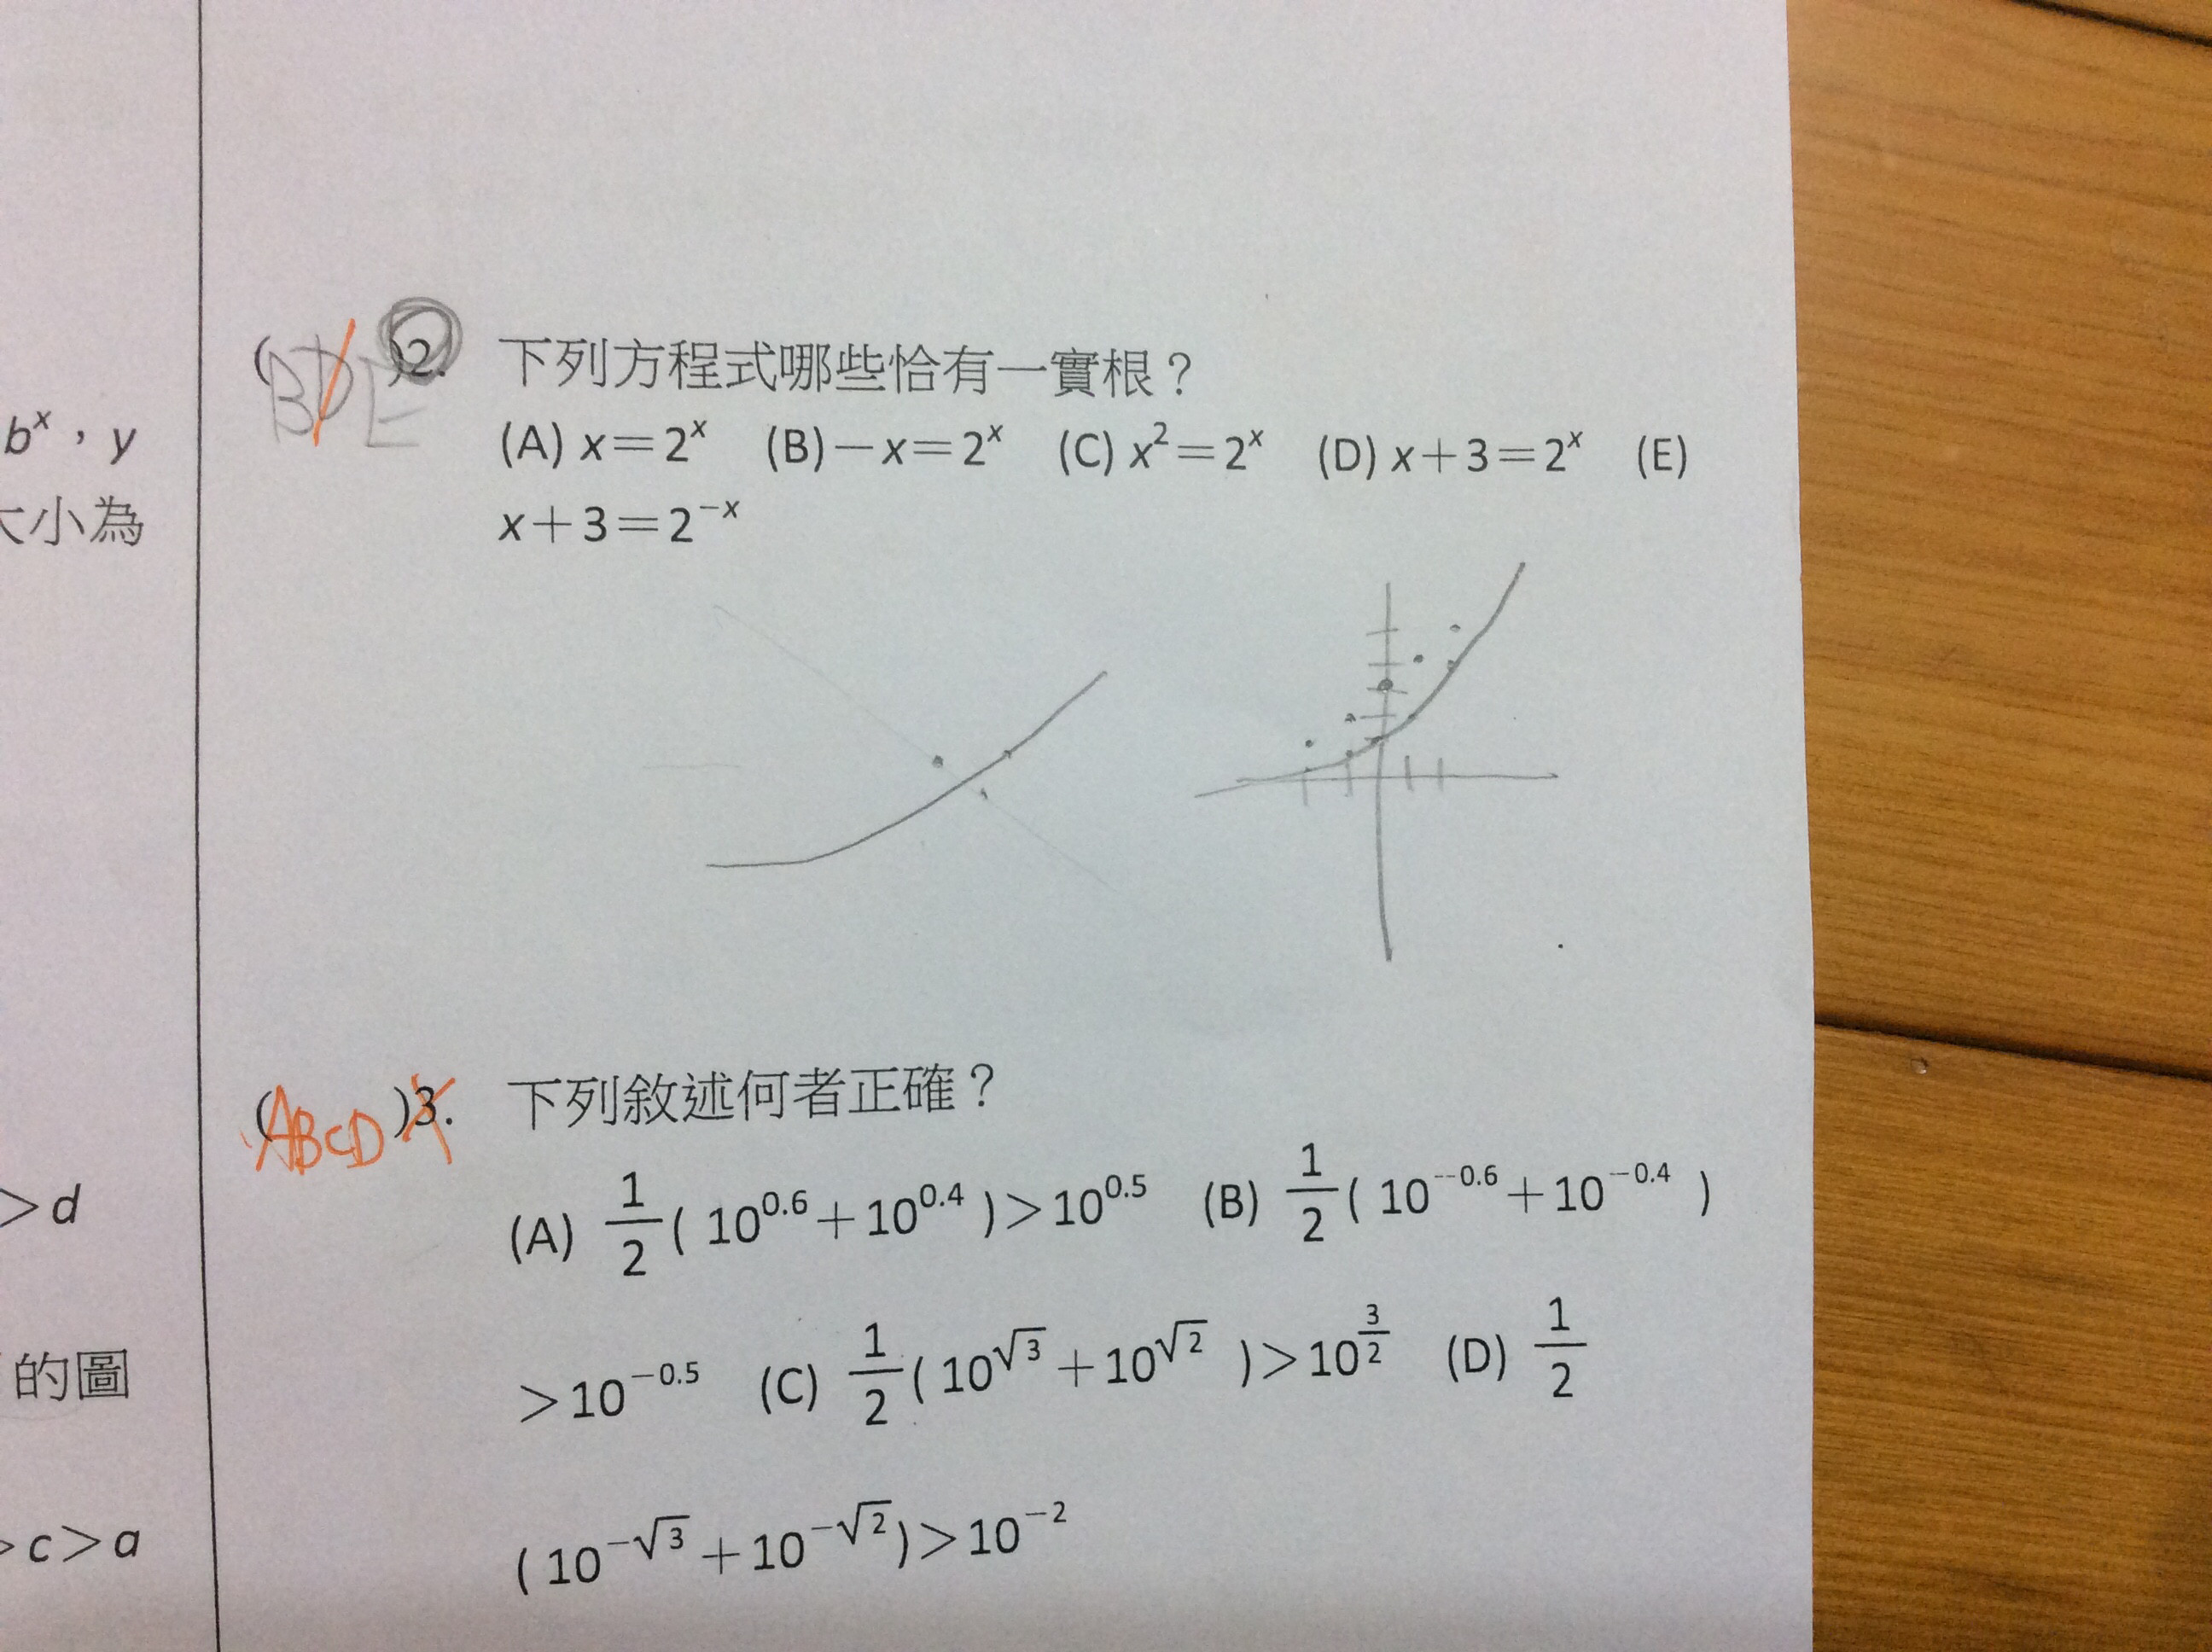 bˣ，y
小為
>d
的圖
>c>a
(BDE)2. 下列方程式哪些恰有一實根？
(A) x＝2ˣ (B)－x＝2ˣ (C) x²＝2ˣ (D) x＋3＝2ˣ (E)
x＋3＝2⁻ˣ
(ABCD)3. 下列敘述何者正確？
(A) 1/2 ( 10^0.6＋10^0.4 )＞10^0.5 (B) 1/2 ( 10^－0.6＋10^－0.4 )
＞10^－0.5 (C) 1/2 ( 10^√3＋10^√2 )＞10^3/2 (D) 1/2
( 10^－√3＋10^－√2)＞10^－2